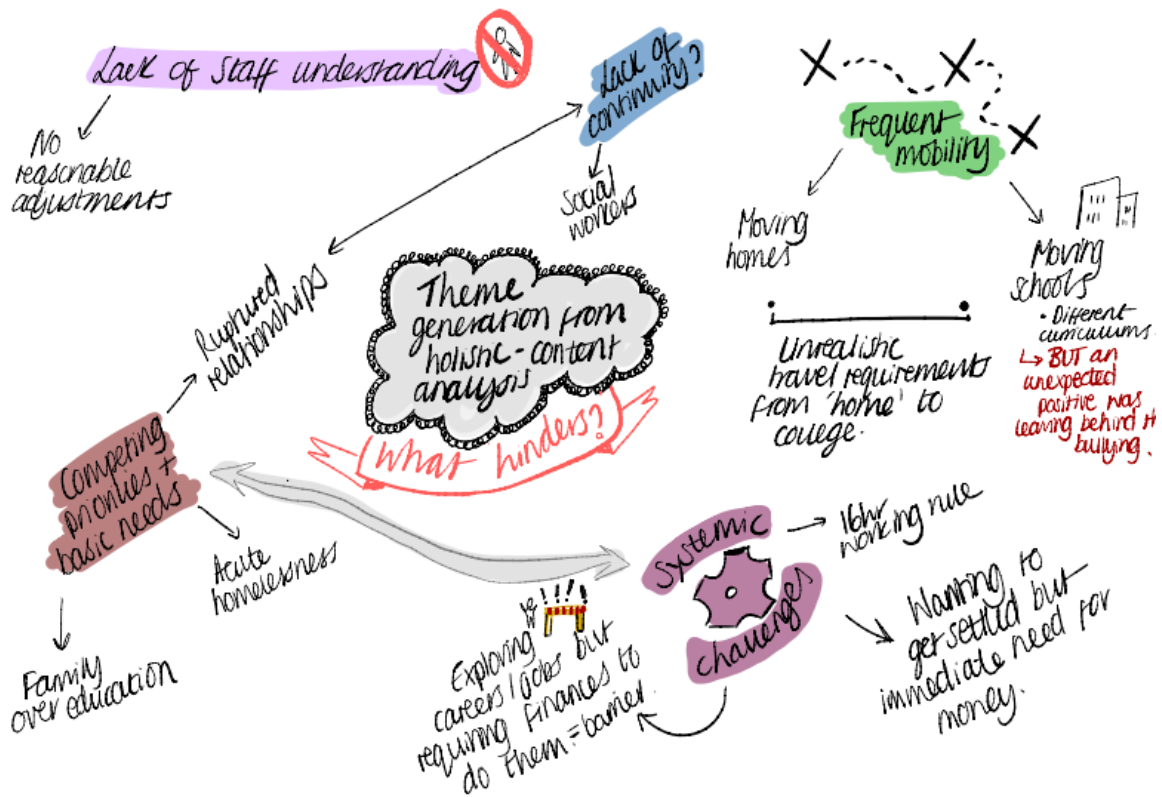 Lack of Staff understanding
No
reasonable
adjustments
Lack of
continuity?
Social
workers
Frequent
mobility
Moving
homes
Moving
schools
• Different
curriculums.
↳ BUT an
unexpected
positive was
leaving behind
bullying.
Unrealistic
travel requirements
from 'home' to
college.
Ruptured
relationships
Theme
generation from
holistic-content
analysis
What hinders?
Competing
priorities +
basic needs
Acute
homelessness
Family
over education
Systemic
challenges
16hr
working rule
Wanting to
get settled but
immediate need for
money.
!!!!
Exploring
careers/jobs but
requiring finances to
do them = barrier.